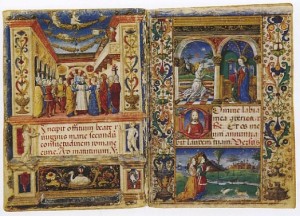 Incipit officium beate v
irginis marie secundu
consuetudinem romane
curie. Ad matutinum. V
Omine labia
mea aperies.
Et os me
um annuntia
bit laudem tuam. Versus